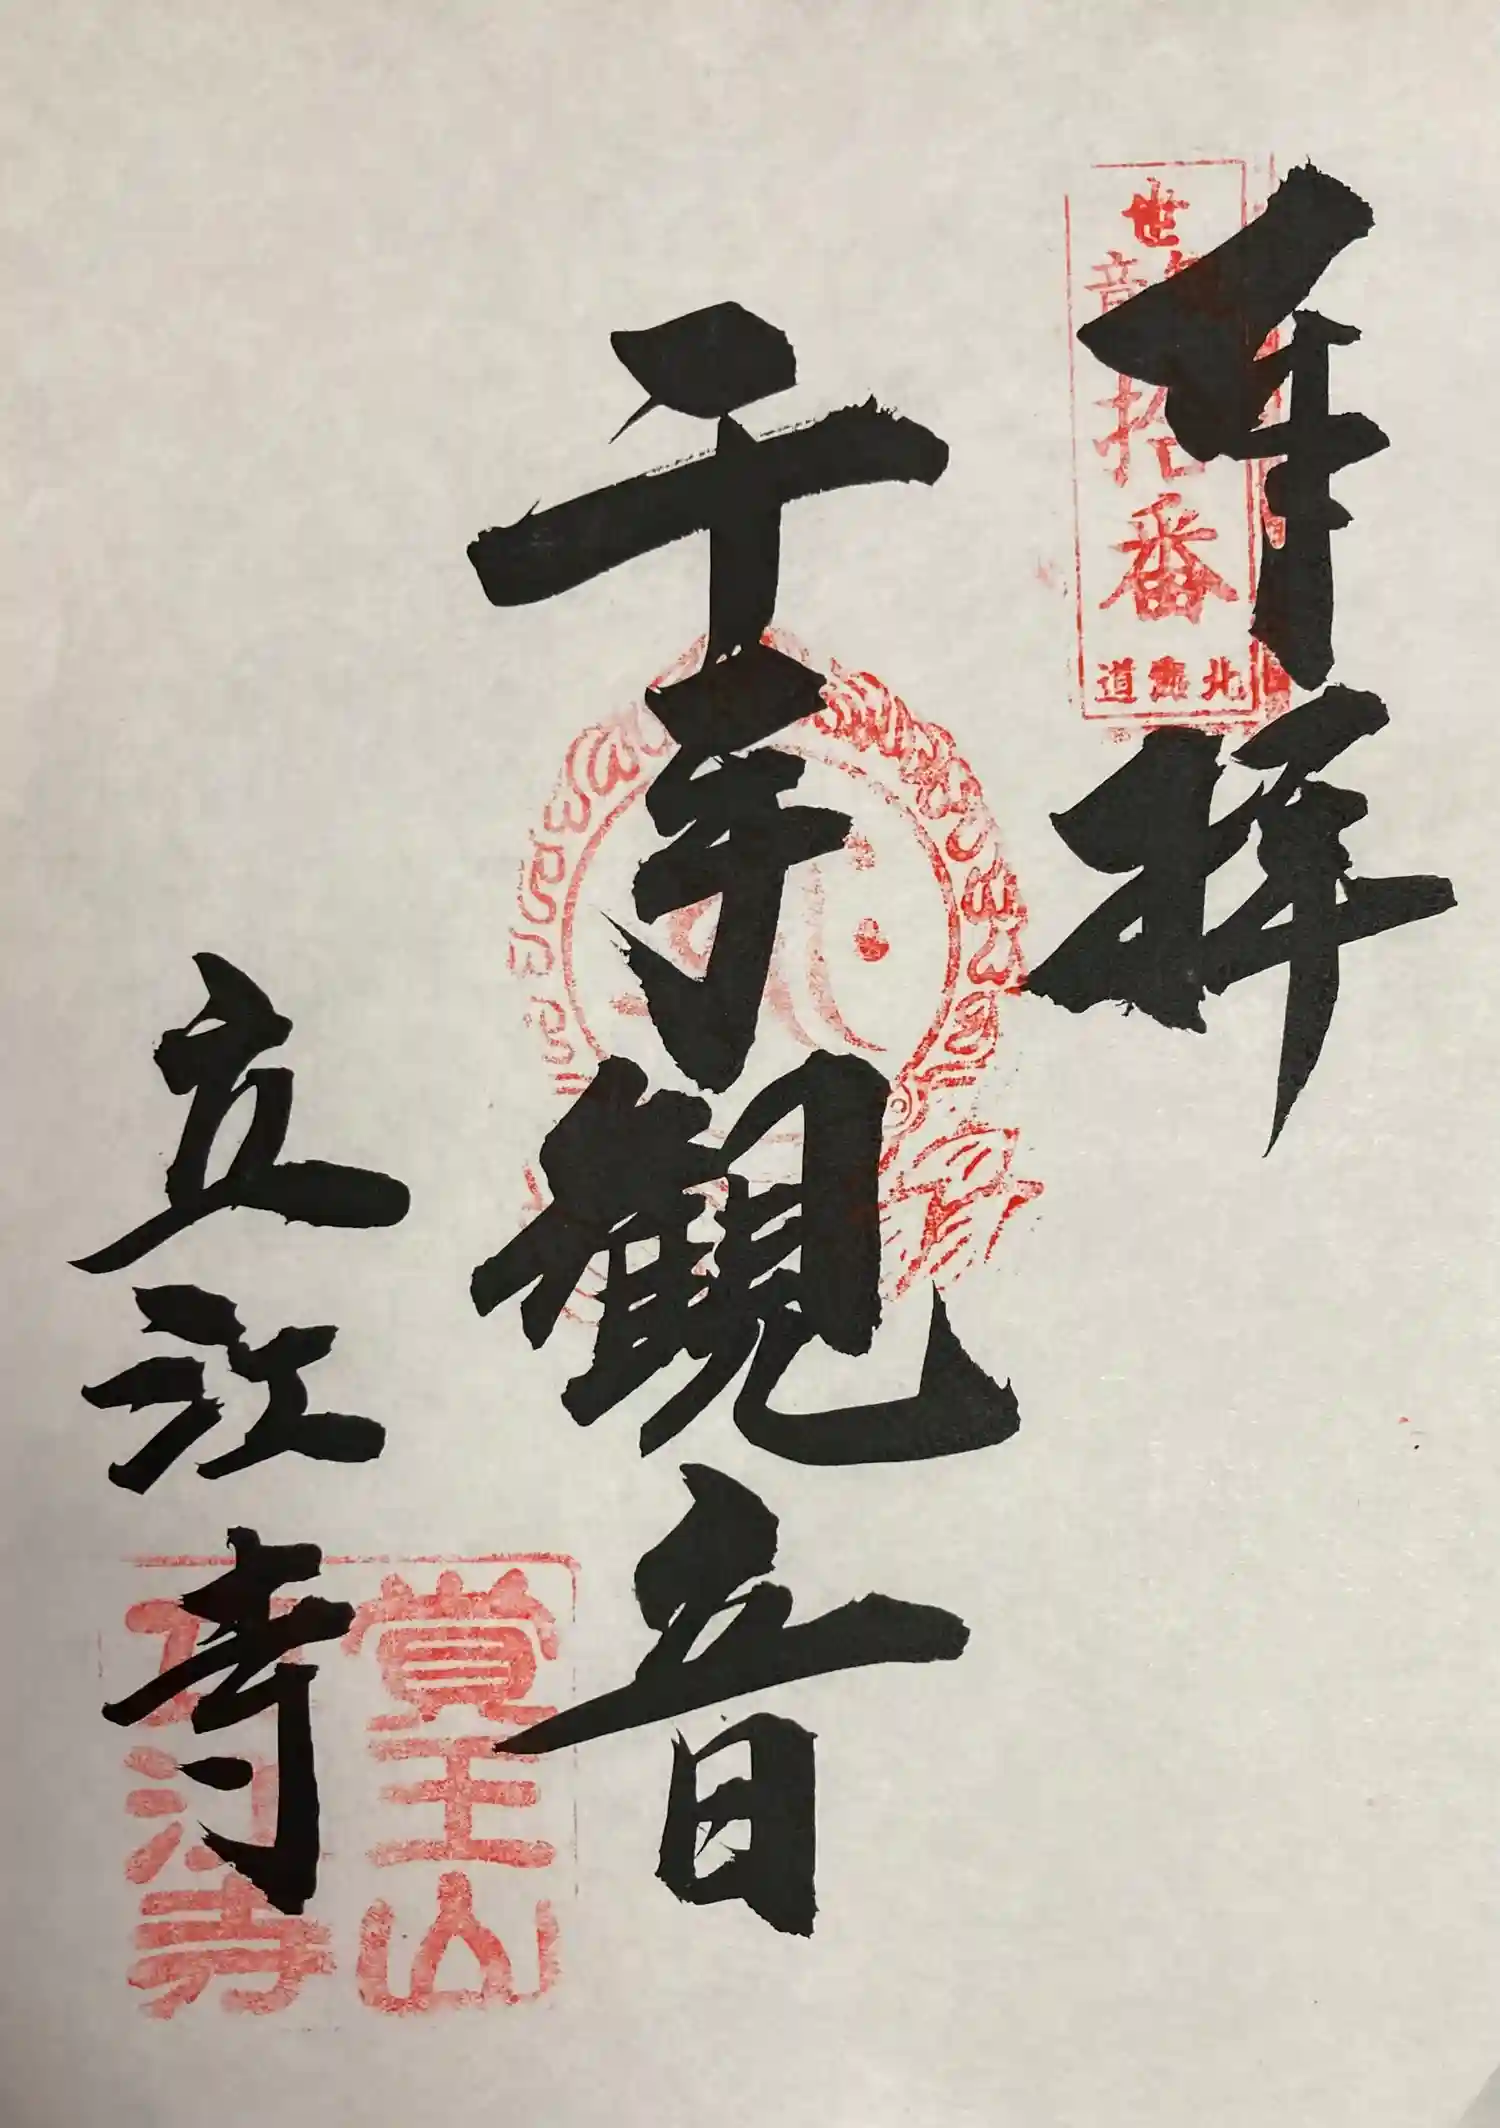 奉拝
世
音
拾
番
北海道
千手観音
立江寺
覚王山
立江寺